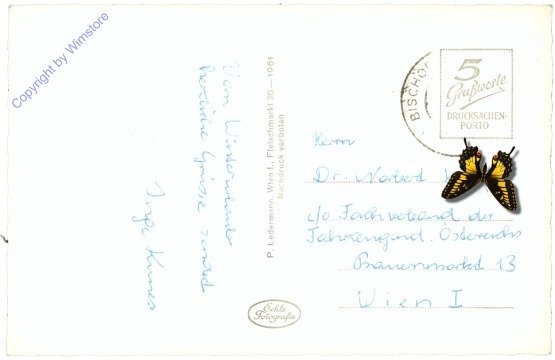 Copyright by Wimstore
Vom Winterurlaub
herzliche Grüsse sendet
Inge Kunes
P. Ledermann, Wien I., Fleischmarkt 20 – 1961
Nachdruck verboten
BISCHOF
5
Grußworte
DRUCKSACHEN-
PORTO
Herrn
Dr. Norbert
c/o Fachverband der
Fahrzeugind. Österreichs
Bauernmarkt 13
Wien I
Echte
Fotografie